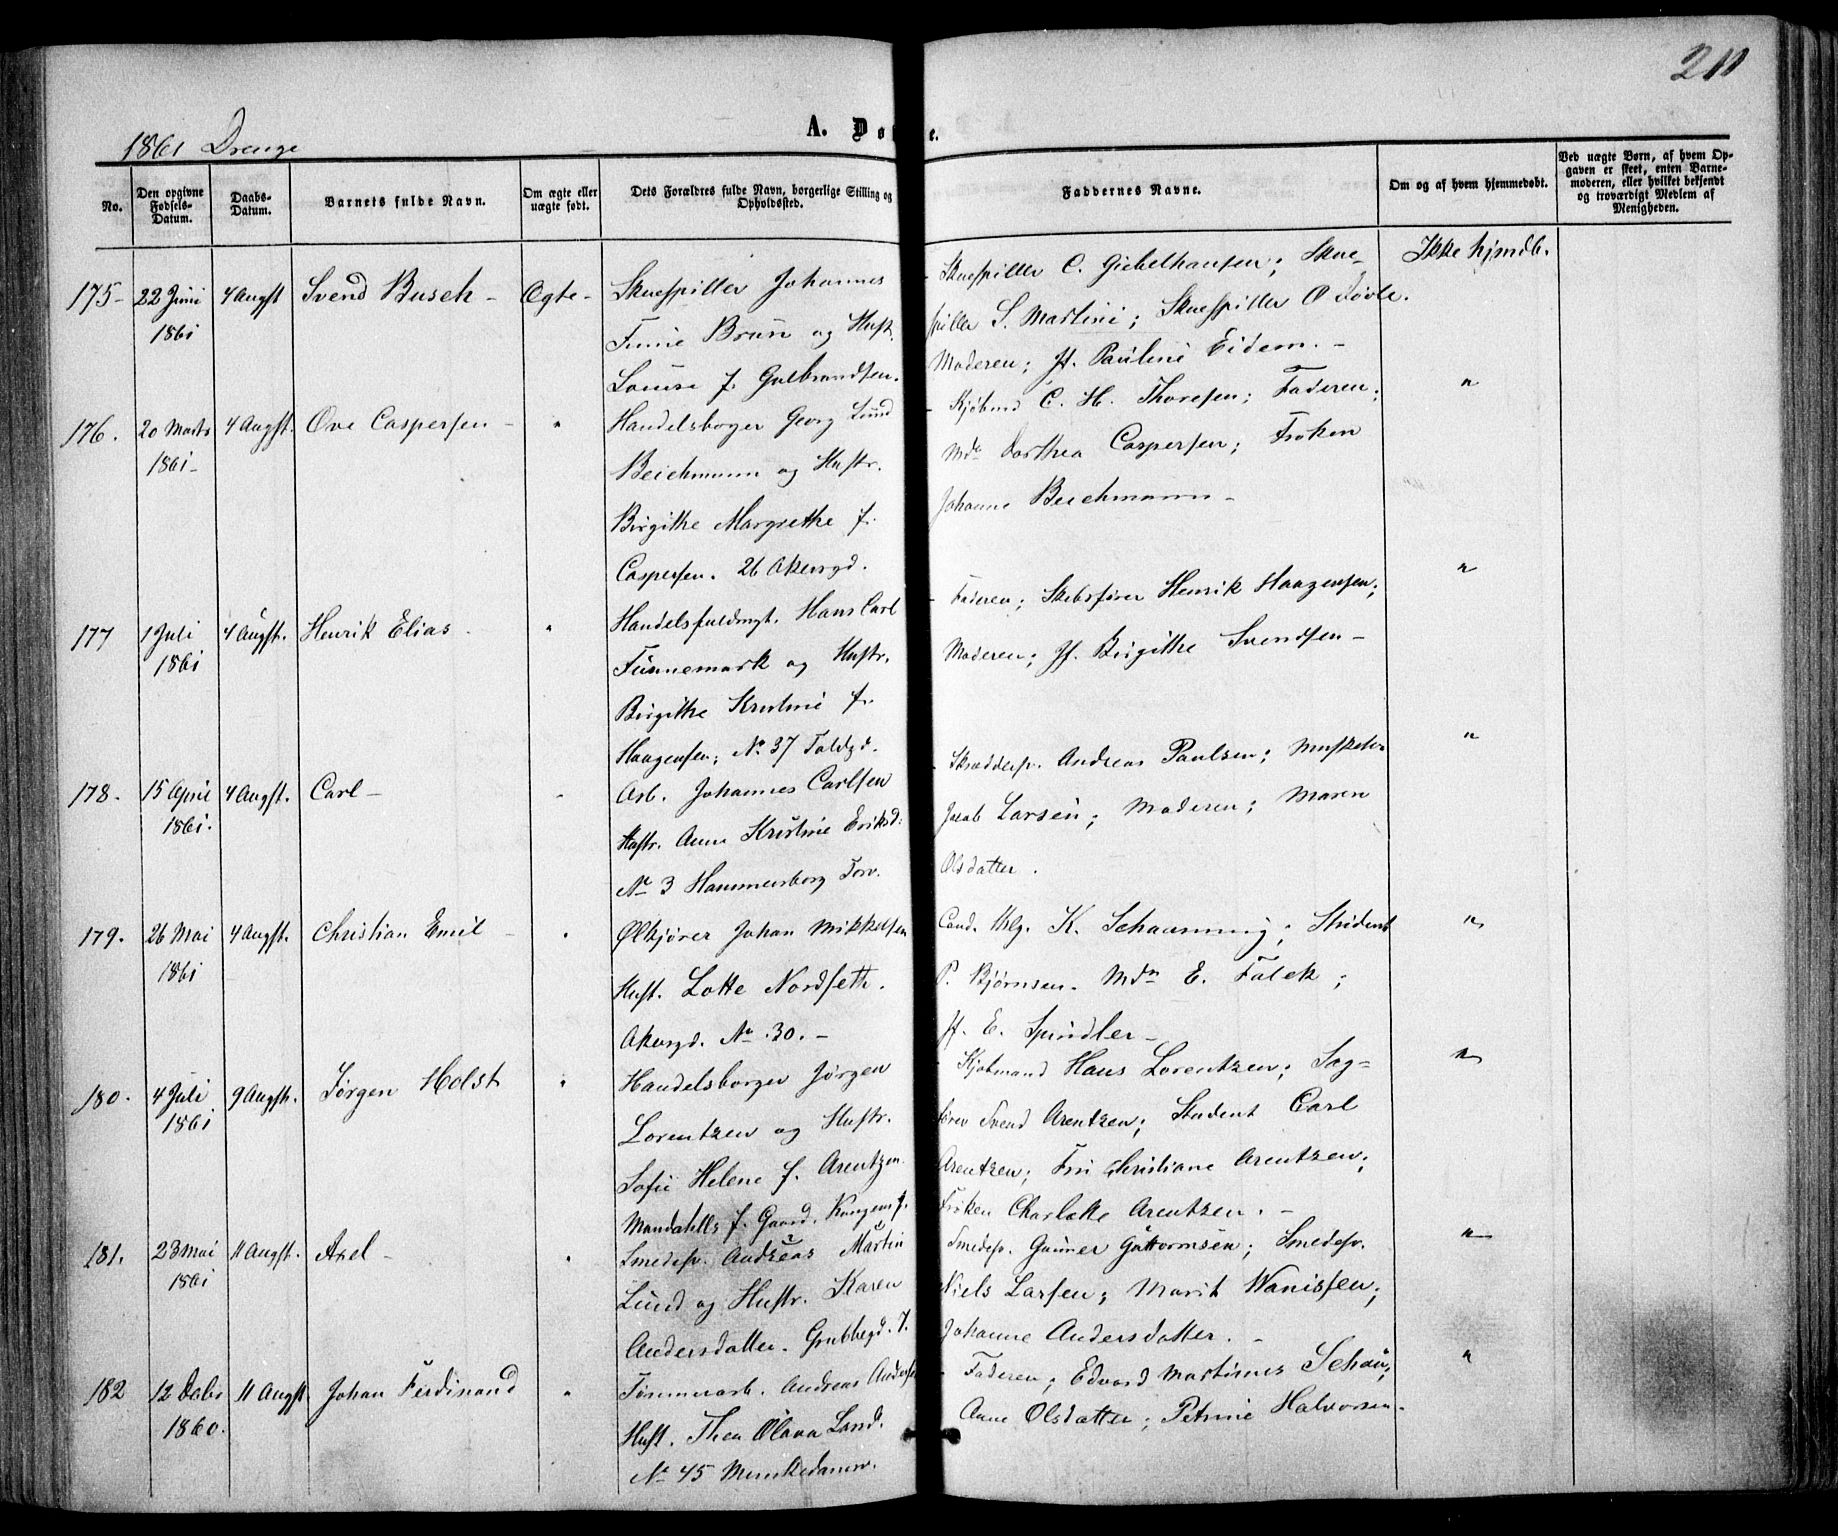 211
1861 Drenge
A. Dø e.
No.
Den opgivne Fødsels-Datum.
Daabs-Datum.
Barnets fulde Navn.
Om ægte eller uægte født.
Dets Forældres fulde Navn, borgerlige Stilling og Opholdssted.
Faddernes Navne.
Om og af hvem hjemmedøbt.
Ved uægte Børn, af hvem Opgaven er skeet, enten Barnemoderen, eller hvilket bekjendt og troværdigt Medlem af Menigheden.
175- 22 Juni 1861 4 Augst Svend Busch - Ægte-
Skuespiller Johannes
Finne Brun og Hust.
Louise f. Gulbrandsen.
Skuespiller C. Giebelhausen; Skue-
spiller S. Martini; Skuespiller O Døvle.
Moderen; Jf. Pauline Eidem. -
Ikke hjmdb.
176. 20 Marts 1861- 4 Augst. Ove Caspersen - "
Handelsborger Georg Lund
Beichmann og Hustr.
Birgithe Margrethe f.
Caspersen. 26 Akersgd.
- Kjøbmd C. H. Thoresen; Faderen;
Mdm Dorthea Caspersen; Frøken
Johanne Beichmann -
"
177 1 Juli 1861 4 Augst. Henrik Elias - "
Handelsfuldmgt. Hans Carl
Finnemark og Hustr.
Birgithe Kristine f.
Haagensen; No 37 Toldgd.
- Faderen; Skibsfører Henrik Haagensen;
Moderen; Jf. Birgithe Svendsen -
"
178. 15 April 1861. 4 Augst. Carl - "
Arb. Johannes Carlsen
Hustr. Anne Kristine Eriksd:
No 3 Hammersborg Torv.
- Skræddersv. Andreas Paulsen; Musketer
Jacob Larsen; Moderen; Maren
Olsdatter.
"
179. 26 Mai 1861 4 Augst. Christian Emil - "
Ølkjører Johan Mikkelsen
Hust. Lotte Nordseth.
Akersgd. No 30. -
Cand. thlg. K. Schanning; Student
P. Bjørnsen. Mdm E. Falck;
Jf. E. Spindler -
"
180. 4 Juli 1861 9 Augst. Jørgen Holst "
Handelsborger Jørgen
Lorentzen og Hustr.
Sofie Helene f. Arentzen
Mandahlls f. Gaard. Kongensg.
- Kjøbmand Hans Lorentzen; Sag-
fører Svend Arentzen; Student Carl
Arentzen; Fru Christiane Arentzen;
Frøken Charlotte Arentzen. -
"
181. 23 Mai 1861 11 Augst. Axel - "
Smedesv. Andreas Martin
Lund og Hustr. Karen
Andersdatter. Grubbegd. 7.
Smedesv. Gunner Guttormsen; Smedesv.
Niels Larsen; Marit Wanissen;
Johanne Andersdatter. -
"
182 12 Decbr 1860. 11 Augst Johan Ferdinand "
Tømmerarb. Andreas Anders
Hust. Thea Olava Land.
No 45 Munkedamsv.
- Faderen; Edvard Martinus Schau;
Anne Olsdatter; Petrine Halvorsen.
"